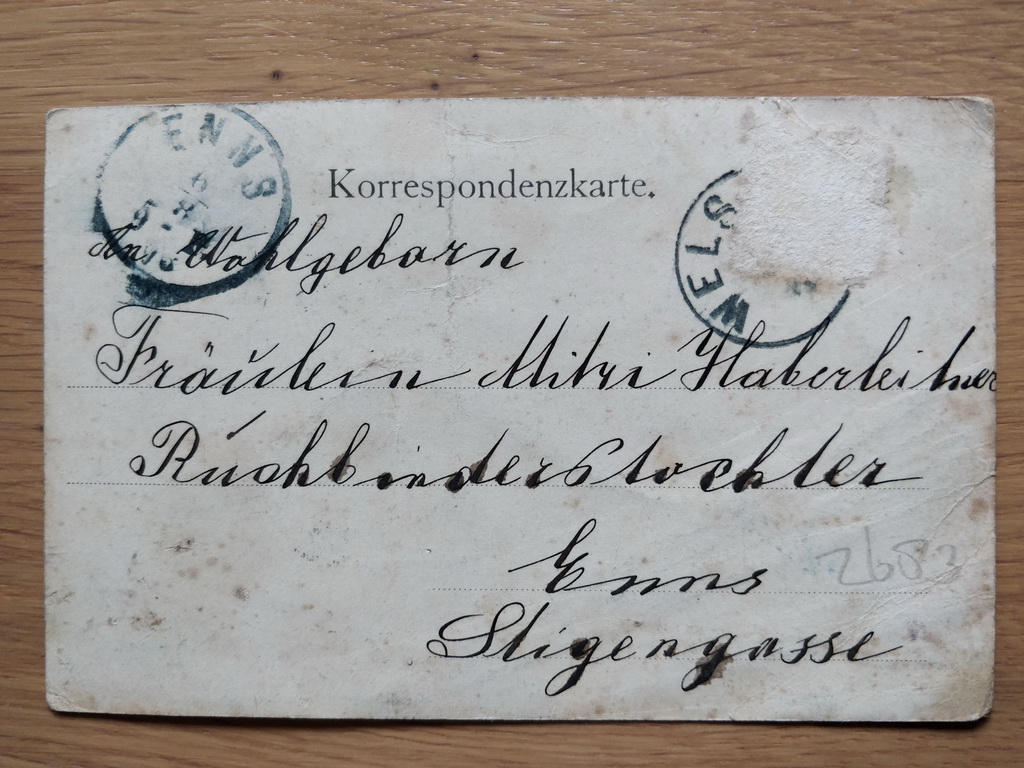 ENNS
Korrespondenzkarte.
WELS
An Wohlgeborn
Fräulein Mitzi Haberleitner
Buchbinderstochter
Enns
2682
Stigengasse